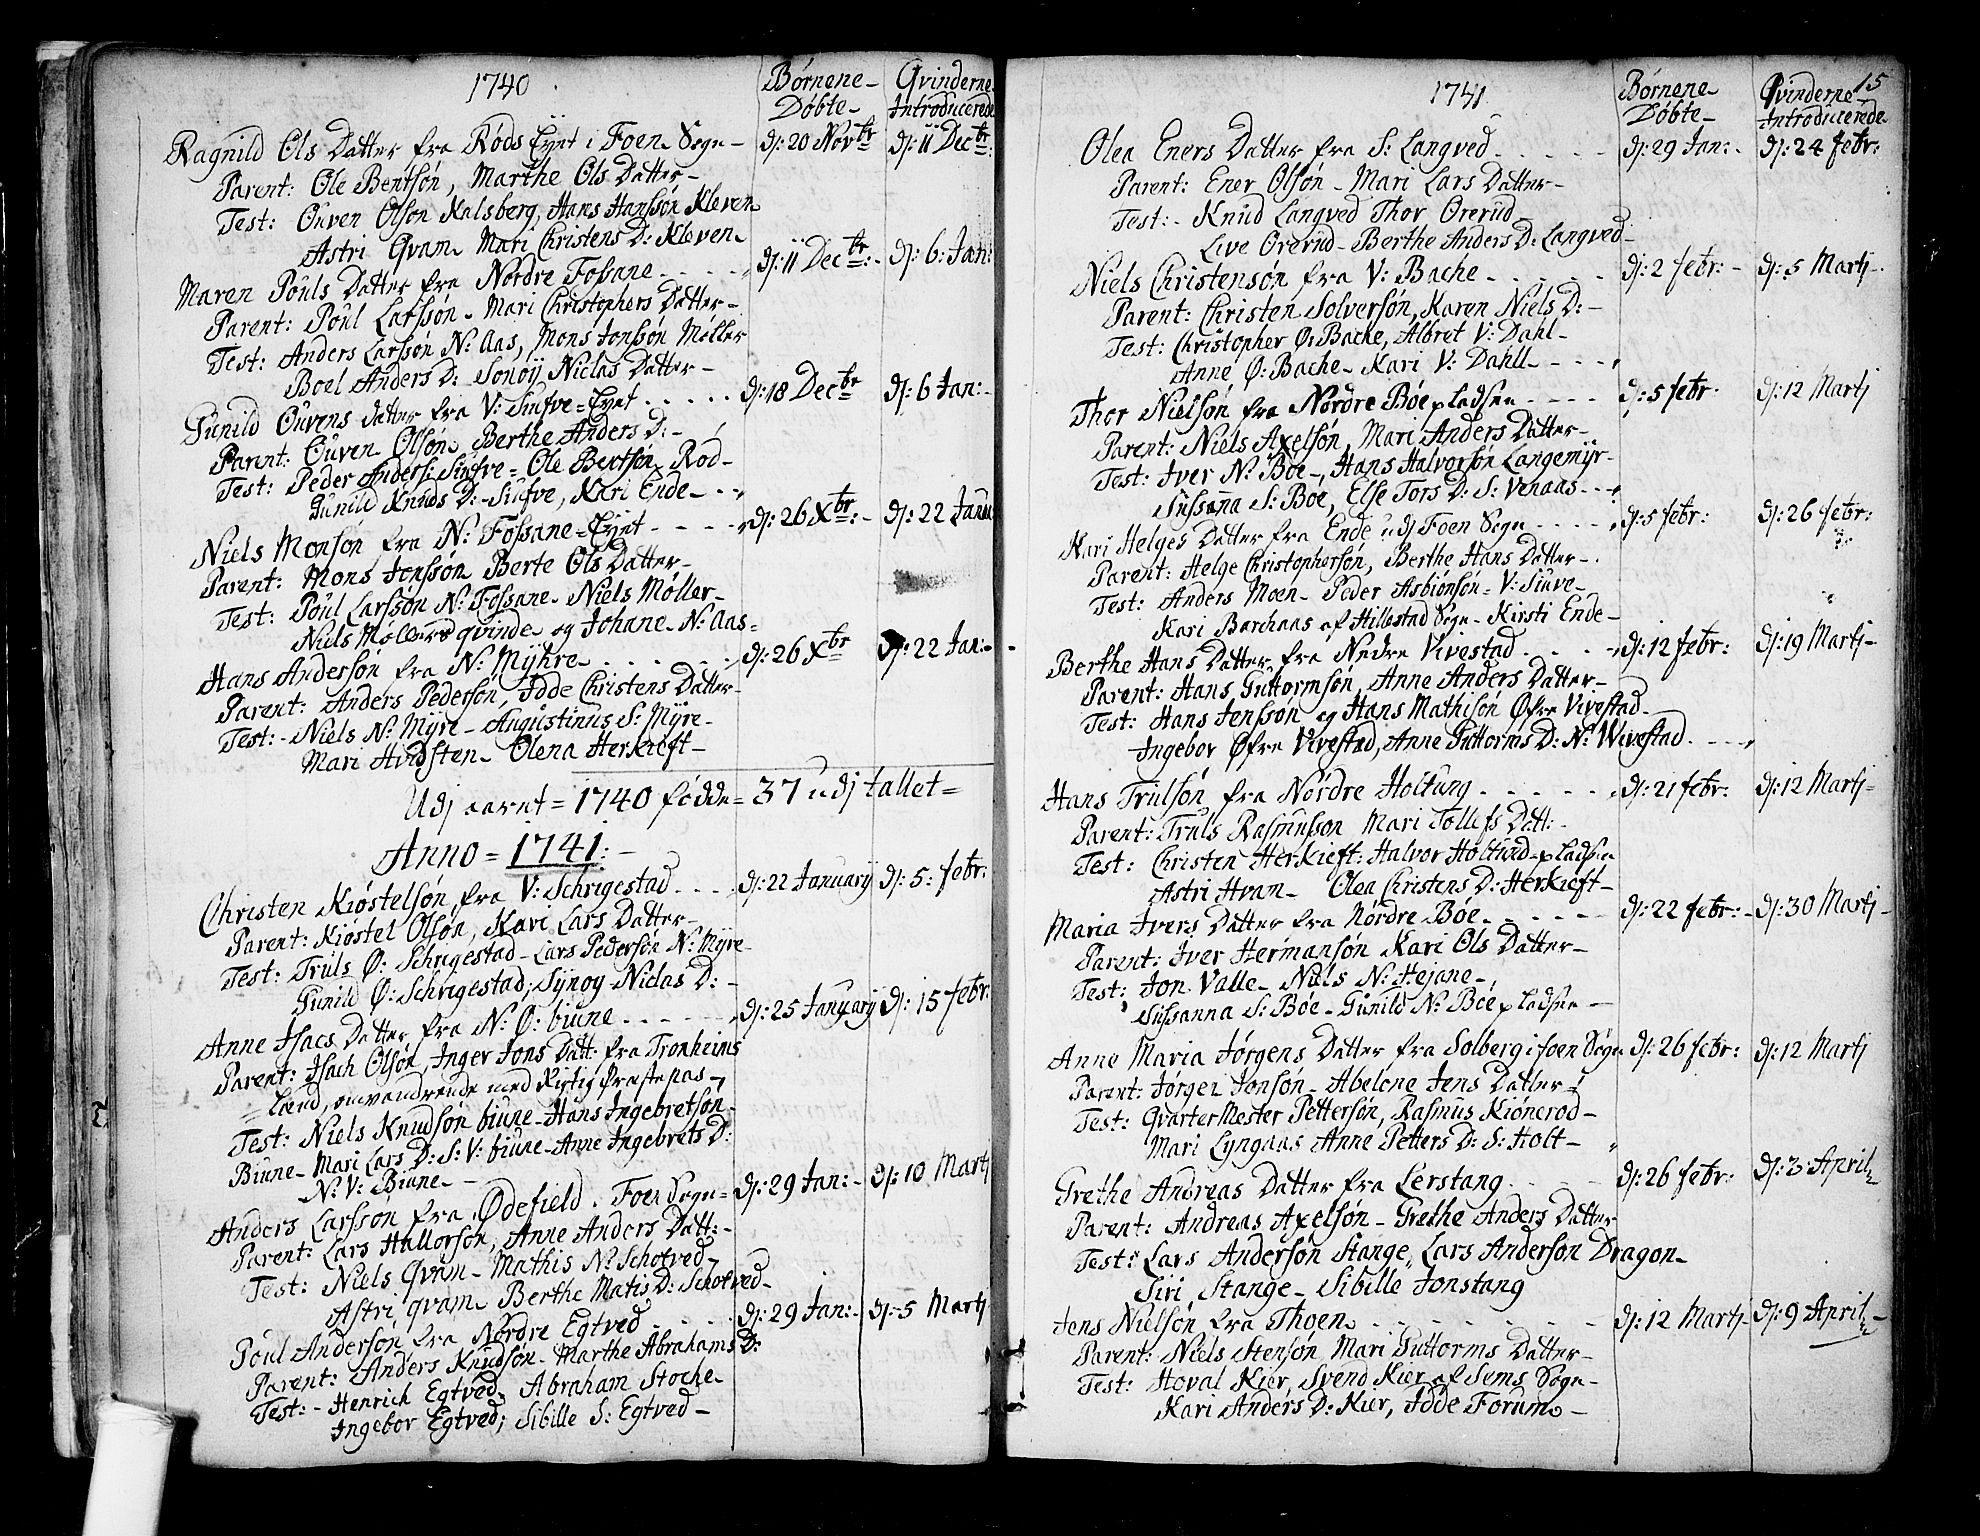 1740
Børnene Døbte
Qvinderne Introducerede
Ragnild Ols Datter fra Røds Eyet i Foen Sogn dj: 20 Novbr dj: 11 Decbr:
Parent: Ole Bentsøn, Marthe Ols Datter
Test: Ouven Olson Kalsberg, Hans Hanssøn Kleven
Astri Qvam Mari Christens D: Kleven
Maren Pouls Datter fra Nordre Fossane dj: 11 Decbr: dj: 6: Jan:
Parent: Poul Larssøn Mari Christophers Datter
Test: Anders Larssøn N: Aas, Mons Jonssøn Møller
Boel Anders D: Sonøÿ Niclas Datter
Gunild Ouvens datter fra V: Siufve=Eyet dj: 18 Decbr dj: 6 Jan:
Parent: Ouven Olsøn Berthe Anders D:
Test: Peder Anders: Siufve = Ole Bertsøn Rød
Gunild Knuds D: Siufve, Kari Ende
Niels Monsøn fra N: Fossane=Eyet dj: 26 Xbr: dj: 22 Janu
Parent: Mons Jonssøn Berte Ols Datter
Test: Poul Larssøn N: Fossane Niels Møller
Niels Møllers qvinde og Johane N: Aas
Hans Andersøn fra N: Mÿhre dj: 26 Xbr dj: 22 Jan:
Parent: Anders Pedersøn, Idde Christens Datter
Test: Niels N: Mÿre Augustinus S: Mÿre
Mari Hvidsten Olena Herkieft
Udj aaret = 1740 fødde = 37 udj tallet =
Anno = 1741:
Christen Kiøstelsøn, fra V: Schrigestad dj: 22 Januarÿ dj: 5: febr:
Parent: Kiøstel Olsøn, Kari Lars Datter
Test: Truls Ø: Schrigestad Lars Pedersøn N: Mÿre
Gunild Ø: Schrigestad; Sÿnoy Niclas D:
Anne Isacs Datter fra N: Ø: biune dj: 25 Januarÿ dj: 15 febr:
Parent: Isach Olsøn, Inger Jons Datt: fra Tronheims
Land, omvandrende med Rigtig Præstepas
Test: Niels Knudsøn biune Hans Ingebretsøn
Biune Mari Lars D: S: V: biune Anne Ingebrets D:
N: V: Biune
Anders Larsson fra Ødefield Foen Sogn dj: 29 Jan: dj: 10 Martj
Parent: Lars Hallorsøn, Anne Anders Datt:
Test: Niels Qvam Mathis N: Schotved
Astri qvam Berthe Matis D: Schotved
Poul Andersøn fra Nordre Egtved dj: 29 Jan: dj: 5 Martj
Parent: Anders Knudsøn Marthe Abrahams D:
Test: Henrich Egtved, Abraham Stoche
Ingebor Egtved; Sibille S: Egtved
1741
15
Børnene Døbte
Qvinderne Introducerede
Olea Eners Datter fra S: Langved dj: 29 Jan: dj: 24 febr:
Parent: Ener Olsøn Mari Lars Datter
Test: Knud Langved Thor Orerud
Live Orerud Berthe Anders D: Langved
Niels Christenson fra V: Bache dj: 2 febr: dj: 5 Martj
Parent: Christen Solversøn, Karen Niels D:
Test: Christopher Ø: Bache, Albret V: Dahl
Anne Ø: Bache Kari V: Dahll
Thor Nielsøn fra Nordre Bøe pladsen dj: 5 febr dj: 12 Martj
Parent: Niels Axelsøn, Mari Anders Datter
Test: Iver N: Bøe, Hans Halvorsøn Langemÿr
Sussanna S: Bøe, Else Tors D: S: Venaas
Kari Helges Datter fra Ende udj Foen Sogn dj: 5 febr: dj: 26 febr:
Parent: Helge Christophersøn, Berthe Hans Datter
Test: Anders Moen Peder Asbiønsøn V: Siuve
Kari Barchaas af Hillestad Sogn Kirsti Ende
Berthe Hans Datter fra Nedre Vivestad dj: 12 febr: dj: 19 Martj
Parent: Hans Guttormsøn, Anne Anders Datter
Test: Hans Jenssøn og Hans Mathisøn Øfre Vivestad
Ingebor Øfre Vivestad, Anne Guttorms D: N: Wivestad
Hans Trulsøn fra Nordre Holtung dj: 21 febr: dj: 12 Martj
Parent: Truls Rasmusson Mari Tollefs Datt:
Test: Christen Herkieft: Halvor Holtund pladsen
Astri Hvam Olea Christens D: Herkieft
Maria Ivers Datter fra Nordre Bøe dj: 22 febr: dj: 30 Martj
Parent: Iver Hermansøn Kari Ols Datter
Test: Jon Valle Niels N: Hejane
Sussanna S: Bøe Gunild N: Bøe pladsen
Anne Maria Jørgens Datter fra Solberg i foen Sogn dj: 26 febr: dj: 12 Martj
Parent: Jørgen Jonsøn Abelone Jens Datter
Test: QvarterMester Pettersøn, Rasmus Kiønerød
Mari Lyngaas Anne Petters D: S: Holt
Grethe Andreas Datter fra Lerstang dj: 26 febr: dj: 3 April
Parent: Andreas Axelsøn Grethe Anders Datter
Test: Lars Andersøn Stange, Lars Anderson Dragon
Siri Stange Sibille Jonstang
Jens Nielsøn fra Thoen dj: 12 Martj dj: 9 April
Parent: Niels Stensøn Mari Guttorms Datter
Test: Hoval Kier, Svend Kier af Sems Sogn
Kari Anders D: Kier, Idde Forum